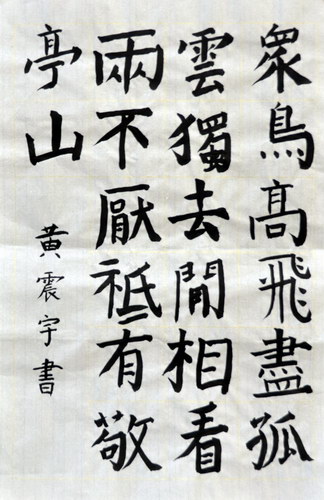 眾鳥高飛盡孤
雲獨去閒相看
兩不厭祗有敬
亭山
黃震宇書